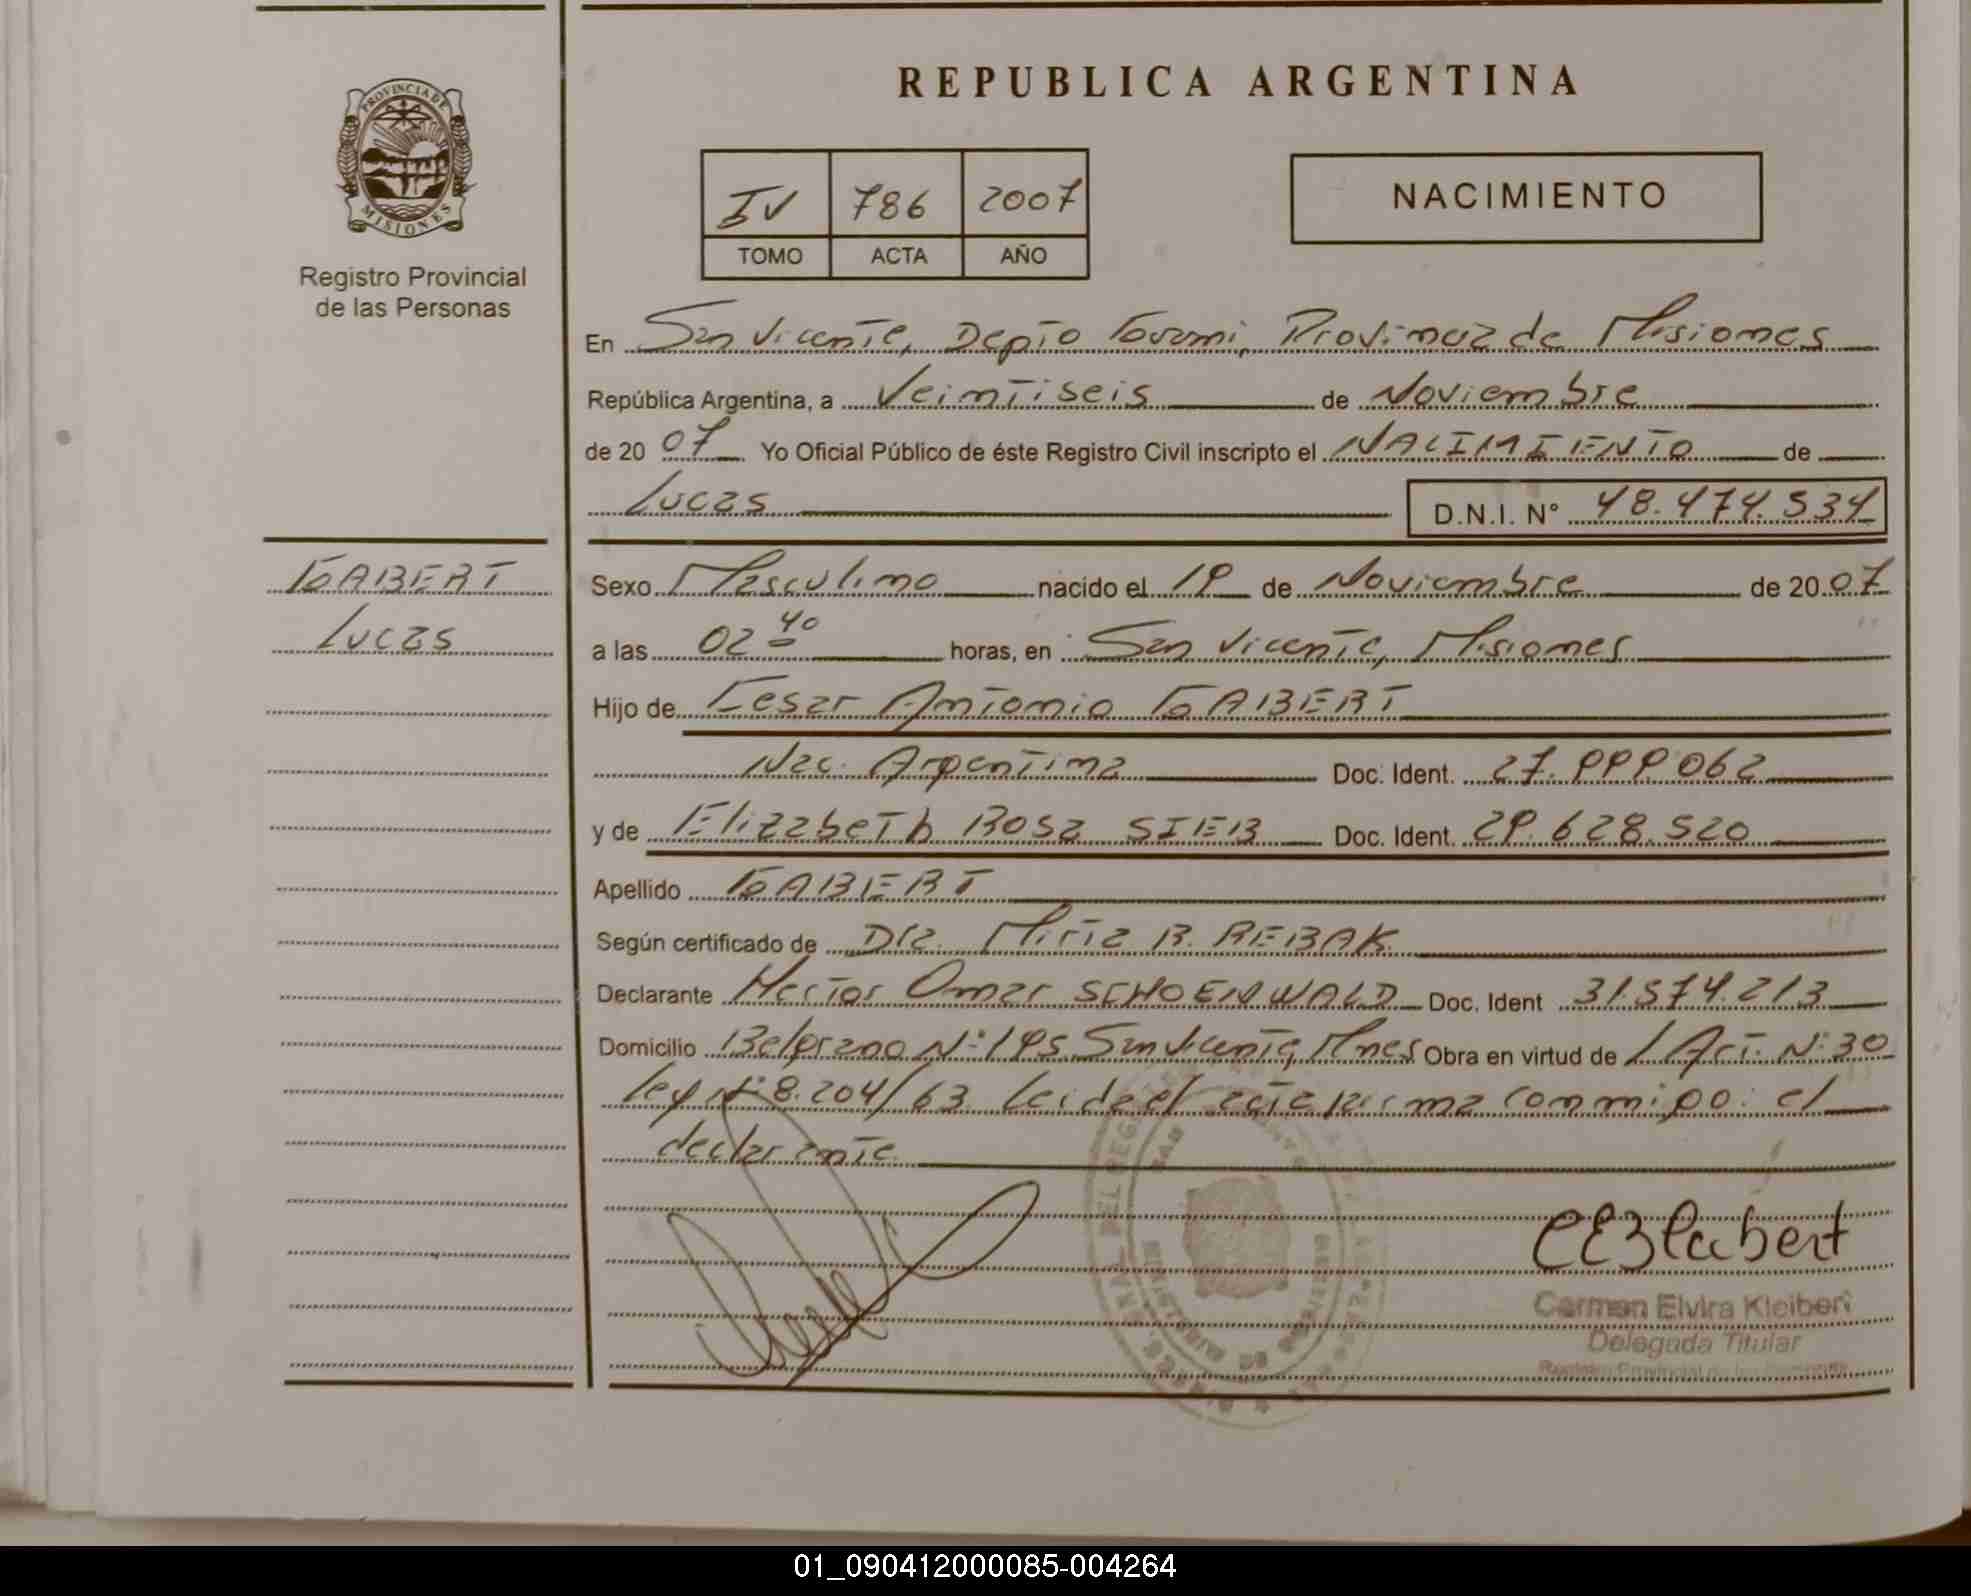 PROVINCIA DE
MISIONES
Registro Provincial
de las Personas
REPUBLICA ARGENTINA
IV 786 2007
TOMO ACTA AÑO
NACIMIENTO
En San Vicente, Depto Guarani, Provincia de Misiones
República Argentina, a Veintiseis de Noviembre
de 20 07 Yo Oficial Público de éste Registro Civil inscripto el NACIMIENTO de
Lucas D.N.I. N° 48.474.534
GABERT
Lucas
Sexo Masculino nacido el 19 de Noviembre de 20 07
a las 02 40 horas, en San Vicente, Misiones
Hijo de Cesar Antonio GABERT
Nac. Argentina Doc. Ident. 27.999.062
y de Elizabeth Rosa SIEB Doc. Ident. 29.628.520
Apellido GABERT
Según certificado de Dra. Mirta R. REBAK
Declarante Hector Omar SCHOENWALD Doc. Ident 31.574.213
Domicilio Belgrano N° 195 San Vicente, Mnes Obra en virtud de / Art. N° 30
Ley N° 8.204/63 Leida el acta firma conmigo: el
declarante
Carmen Elvira Kleibert
Delegada Titular
Registro Provincial de las Personas
01_090412000085-004264